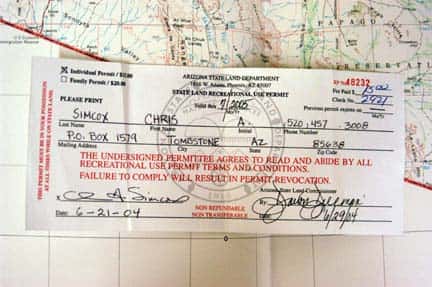 PAPAGO
☒ Individual Permit / $15.00
ARIZONA STATE LAND DEPARTMENT
RP No. 48232
☐ Family Permit / $20.00
1616 W. Adams, Phoenix, AZ 85007
Fee Paid $ 15.00
STATE LAND RECREATIONAL USE PERMIT
Check No. 2921
PLEASE PRINT
Valid thru 7/2005
Previous permit expires on
SIMCOX CHRIS A. 520.457 3008
Last Name First Name Initial Phone Number
P.O. BOX 1579 TOMBSTONE AZ 85638
Mailing Address City State Zip Code
THE UNDERSIGNED PERMITTEE AGREES TO READ AND ABIDE BY ALL
RECREATIONAL USE PERMIT TERMS AND CONDITIONS.
FAILURE TO COMPLY WILL RESULT IN PERMIT REVOCATION.
A. Simcox
Arizona State Land Commissioner
Date: 6-21-04
NON REFUNDABLE
NON TRANSFERABLE
By:
6/29/04
THIS PERMIT MUST BE IN YOUR POSSESSION
AT ALL TIMES WHEN ON STATE LAND.
1912